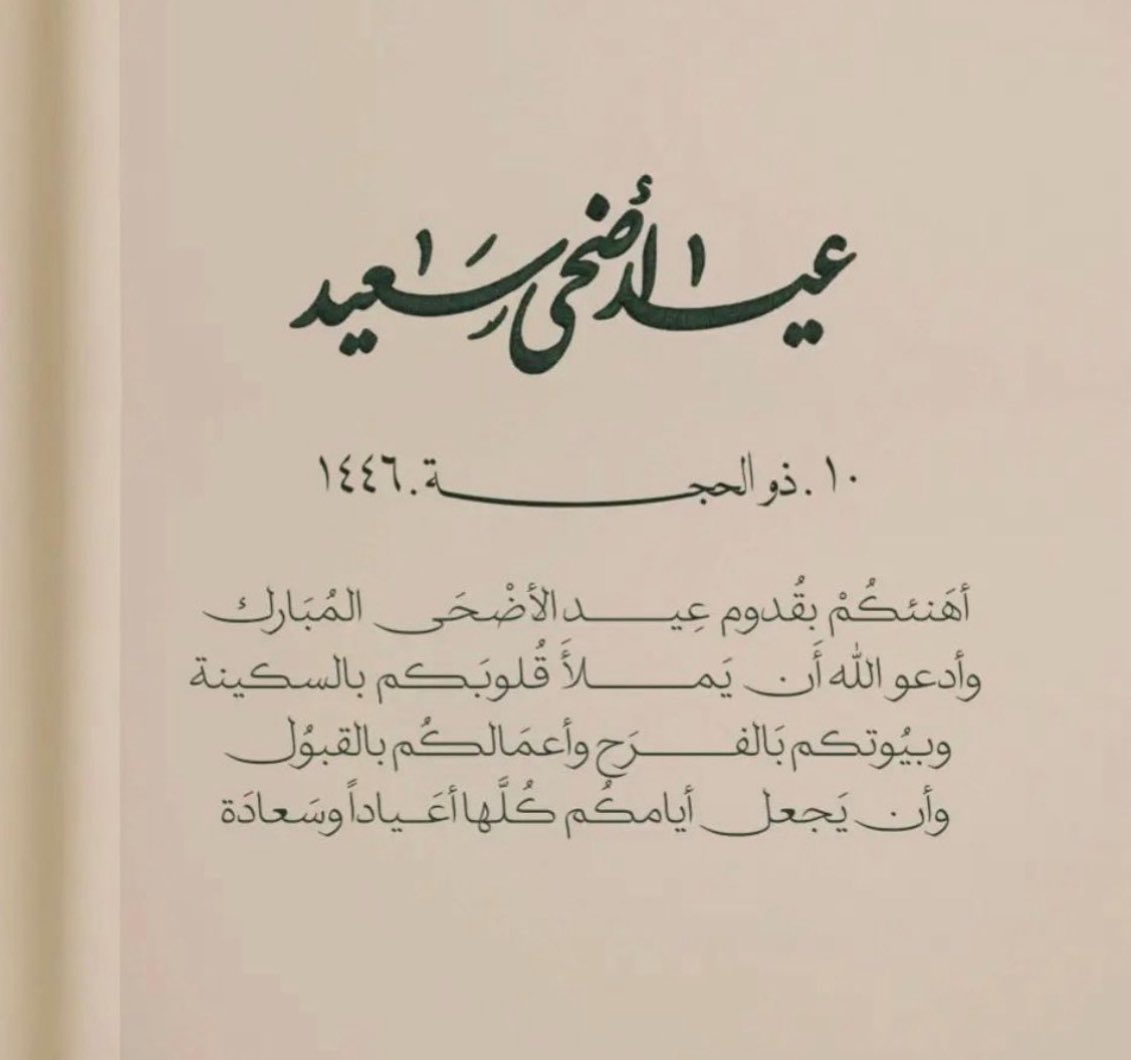 عيد الأضحى سعيد
١٠ .ذو الحجـــــة.١٤٤٦
أهَنئكُمْ بقُدوم عِيـــد الأضْحَى المُبَارك
وأدعو الله أَن يَمـــلأَ قُلوبَكم بالسكينة
وبيُوتكم بَالفـــرَح وأعمَالكُم بالقبوُل
وأن يَجعل أيامكُم كُلَّها أعَـياداً وسَعادَة